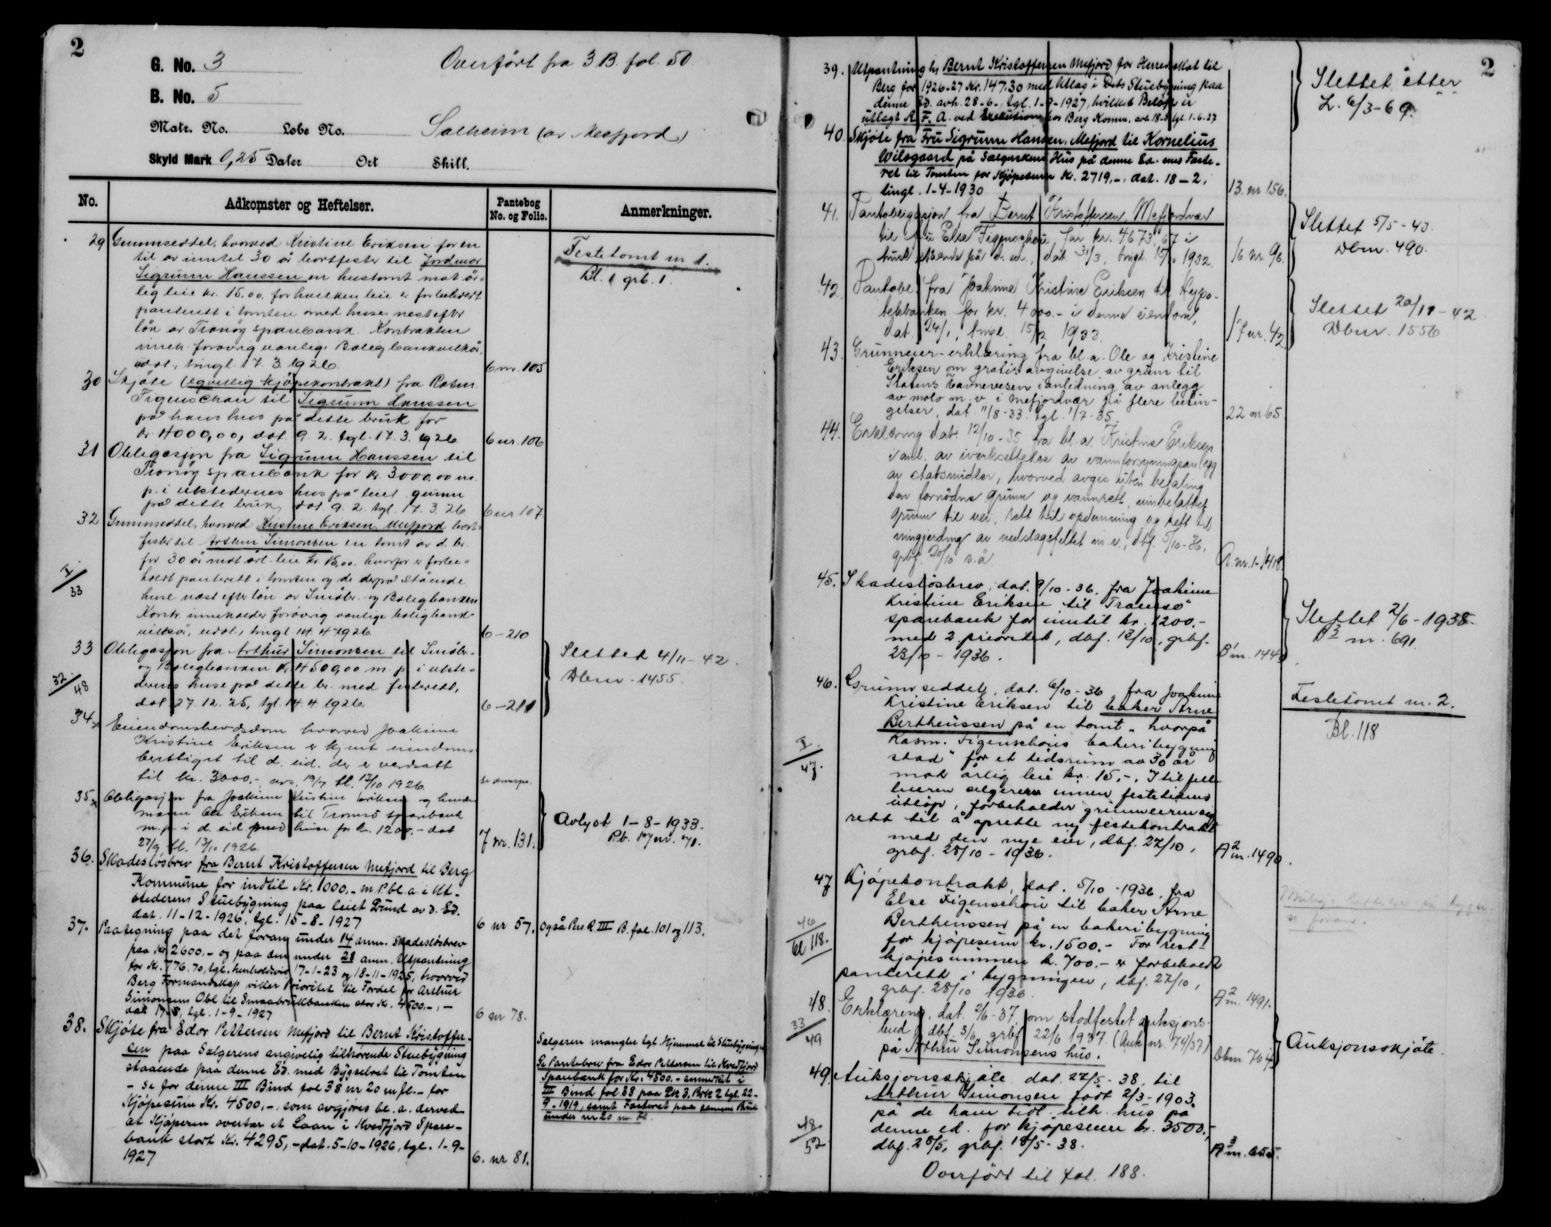 2
G. No. 3
Overført fra 3 B fol 50
B. No. 5
Matr. No. Løbe No. Solheim (av Mefjord)
Skyld Mark 0,25 Daler Ort Skill.
No.
Adkomster og Heftelser.
Pantebog No. og Folio.
Anmerkninger.
29 Grunnseddel, hvorved Kristine Eriksen for en
tid av inntil 30 år bortfester til Jordmor
Sigrunn Hanssen en hustomt mot år-
lig leie kr. 15,00, for hvilken leie er forbeholdt
panterett i tomten med huse nestefter
lån av Tranøy sparebank. Kontrakten
inneh. forøvrig vanlige Boligbankvilkår,
udat., tingl. 17. 3. 1926.
6 nr. 105
Festetomt nr 1.
Bl. 1 grb. 1.
30 Skjøte (egentlig kjøpekontrakt) fra Rasm.
Figenschau til Sigrunn Hanssen
på hans hus på dette bruk for
kr 4000,00, dat. 9. 2. tgl. 17. 3. 1926
6 nr. 106
31 Obligasjon fra Sigrunn Hanssen til
Tranøy sparebank for kr. 3000,00 m.
p. i utstederens hus på leiet grunn
på dette bruk, dat 9. 2. tgl. 17. 3. 26
6 nr 107
32 Grunnseddel, hvorved Kristine Eriksen, Mefjord bort-
fester til Arthur Simonsen en tomt av d. br.
for 30 år mot årl. leie kr 15,00, hvorfor er forbe-
holdt panterett i tomten og de derpå stående
huse næst efter lån av Småbr. og Boligbanken
Kontr. inneholder forøvrig vanlige boligbank-
vilkår, udat., tingl 14. 4 1926
6 - 210
I
33
33 Obligasjon fra Arthur Simonsen til Småbr.-
og Boligbanken kr. 4500,00 m. p. i utste-
dernes huse på dette br. med festerett,
dat 27. 12. 25, tgl. 14. 4 1926
6 - 211
Slettet 4/11 - 42.
Dbnr. 1455.
32
48
34 Eiendomsbevisdom hvorved Joakime
Kristine Eriksen er kjent eiendoms-
berettiget til d. eid. der er verdsatt
til kr. 3000.-
35 Obligasjon fra Joakime Kristine Eriksen og hendes
mann Ole Eriksen til Tromsø sparebank
m.p. i d. eid. med huse for kr. 1200.- dat
27/9 tl. 13/10 1926
7 nr. 131.
Avlyst 1-8-1933.
36. Skadesløsbrev fra Bernt Kristoffersen Mefjord til Berg
Kommune for indtil Kr. 1000,- m. P. bl. a. i Ut-
stederens Stuebygning paa leiet Grund av d. Ed.
dat. 11-12-1926, tgl. 15-8-1927
6 nr 57.
Også Pers. R. III B. fol. 101 og 113.
37. Paategning paa det foran under 14 anm. Skadesløsbrev
paa Kr. 2600,- og paa den under 28 anm. Utpantning
for Kr. 776.70, tgl. henholdsvis 17-1-23 og 18-11-1925, hvorved
Berg Formandskap viker Prioritet til Fordel for Arthur
Simonsens Obl. til Smaabrukbanken stor Kr. 4500,-, -
dat. 17-8, tgl. 1-9-1927
6 nr 78.
38. Skjøte fra Edor Pettersen Mefjord til Bernt Kristoffer-
sen paa Sælgerens angivelig tilhørende Stuebygning
staaende paa denne Ed. med Bygselret til Tomten
- se for denne III Bind fol 38 nr 20 m.fl. - for
Kjøpesum Kr. 4500,-, som avgjøres bl. a. derved
at Kjøperen overtar et Laan i Kvedfjord Spare-
bank stort Kr. 4295,- dat. 5-10-1926, tgl. 1-9-
1927
6. nr 81.
Sælgeren mangler tgl. Hjemmel til Stuebygningen
Se Pantebrev fra Edor Pettersen til Kvedfjord
Sparebank for Kr. 4800,- anmerket i
III Bind fol 38 paa Bnr 3, Bnr 2 tgl. 22-
9-1919, samt Festeret paa samme Bruk
under nr 20 m. fl.
2
39. Utpantning hs Bernt Kristoffersen Mefjord for Herredsskat til
Berg for 1926-27 Kr. 147.30 med Utlæg i Dets Stuebygning paa
denne Ed. avh. 28-6, tgl. 1-9-1927, hvilket Beløp er
utlagt A. F. A. ved Exekution for Berg Komm. avh 18.5 tgl. 1.6.37
40. Skjøte fra Fru Sigrunn Hansen, Mefjord til Kornelius
Wilsgaard på Sælgerskens Hus på denne Ed. med Feste-
ret til Tomten for Kjøpesum Kr. 2719,-, dat. 18-2,
tingl. 1-4-1930
13. nr 156.
Slettet etter
L. 6/3-69.
41. Pantobligasjon fra Bernt Kristoffersen, Mefjordvær
til fru Else Figenschou for kr. 4673,67 i
huse stående på d. ed., dat 31/3, tingl. 1932.
16 nr 96.
Slettet 5/5 - 43.
Dbnr. 490.
42. Pantobl. fra Joakime Kristine Eriksen til Hypo-
tekbanken for kr. 4000.- i denne eiendom,
dat. 24/1, tingl. 15/2 1933.
17 nr. 42.
Slettet 20/11 - 42
Dbnr. 1556
43. Grunneier-erklæring fra bl. a. Ole og Kristine
Eriksen om gratis avgivelse av grunn til
Statens Havnevesen i anledning av anlegg
av molo m. v. i Mefjordvær på flere betin-
gelser, dat. 11/8-33. tgl. 1/2-35
22 nr 65.
44. Erklæring dat. 12/10-35 fra bl. a. Kristine Eriksen
i anl. av iverksettelse av vannforsyningsanlegg
av statsmidler, hvorved avgis uten betaling
den fornødne grunn og vannrett, innbefattet
grunn til vei, rett til opdemning og rett til
inngjerding av nedslagsfeltet m. v., dbf. 5/10-36,
grbf. 20/10 s.å.
45. Skadesløsbrev, dat. 9/10-36. fra Joakime
Kristine Eriksen til "Tromsø"
sparebank for inntil kr. 1200.-
med 2 prioritet, dbf. 12/10, grbf.
23/10 - 1936.
Slettet 2/6 - 1938
nr. 691.
46. Grunnseddel, dat. 6/10-36, fra Joakime
Kristine Eriksen til baker Arne
Bertheussen på en tomt "hvorpå
Rasm. Figenschous bakeribygning
stod" for et tidsrum av 30 år
mot årlig leie kr. 15,-. I tilfelle
leieren selgeren innen festetidens
utløp, forbeholder grunneieren sig
rett til å oprette ny festekontrakt
med den nye eier, dbf. 22/10,
grbf. 28/10 - 1936.
A2 nr. 1490.
I
47.
Festetomt nr. 2.
Bl. 118
47 Kjøpekontrakt, dat. 5/10-1936 fra
Else Figenschou til baker Arne
Bertheussen på en bakeribygning
for kjøpesum kr. 1500.- For rest-
kjøpesummen kr. 700.- er forbeholdt
panterett i bygningen, dbf. 22/10,
grbf. 28/10 1936.
A2 nr. 1491.
46
bl 118.
48. Erklæring, dat. 2/6-37 om stadfestet auksjons-
bud, dbf. 3/6, grbf. 22/6 1937. (Auk. nr. 74/37)
på Arthur Simonsens hus.
33
49
49. Auksjonsskjøte dat. 22/5-38, til
Arthur Simonsen født 2/3-1903
på de ham tidl. tilh. hus på
denne ed. for kjøpesum kr. 3500,-
dbf. 28/5, grbf. 18/5-38.
48
52
Auksjonsskjøte.
Overført til fol. 188.